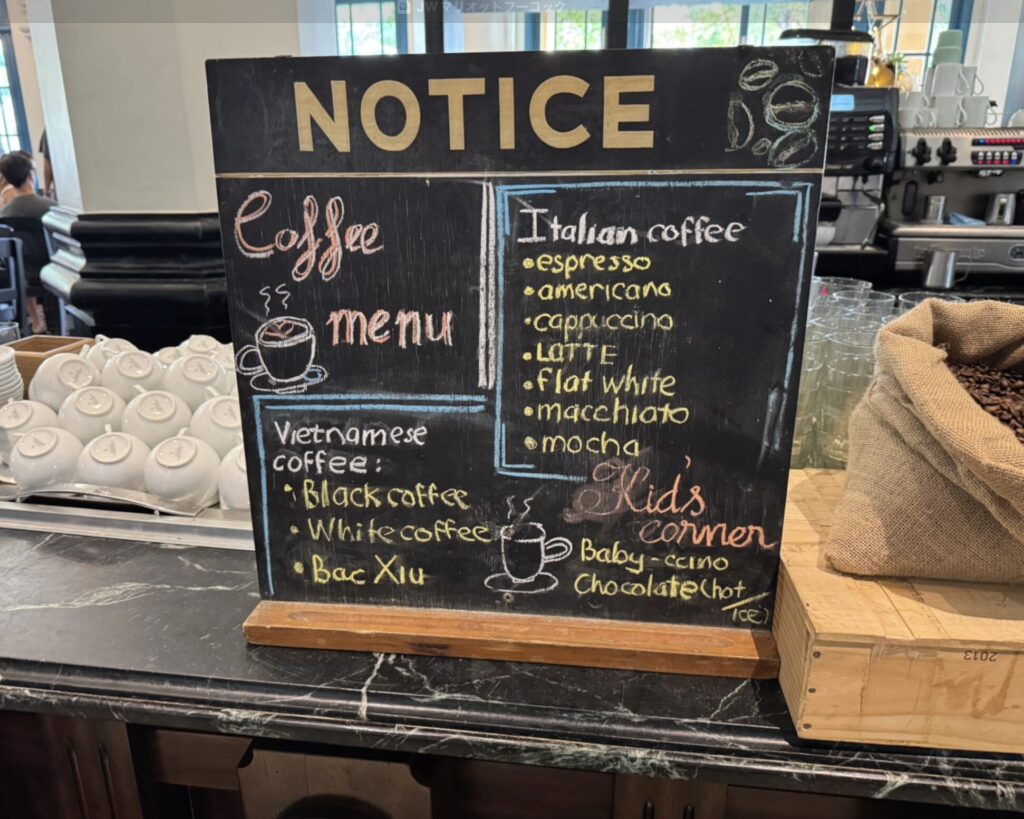 JWマリオットフーコック
NOTICE
Coffee
menu
Italian coffee
• espresso
• americano
• cappuccino
• LATTE
• flat white
• macchiato
• mocha
Vietnamese
coffee:
• Black coffee
• White coffee
• Bac Xiu
Kid's
corner
Baby-ccino
Chocolate (hot/
ICE)
2013